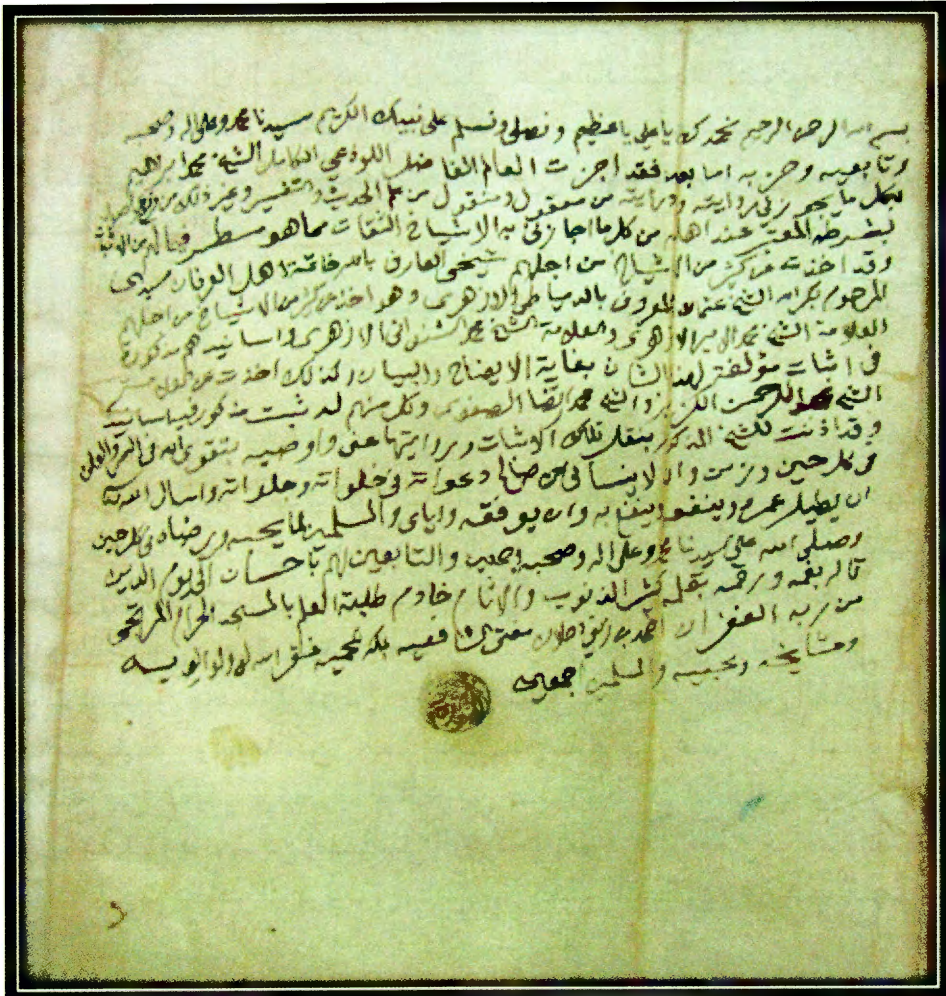 بسم الله الرحمن الرحيم نحمدك يا علي يا عظيم ونصلي ونسلم على نبيك الكريم سيدنا محمد وعلى اله وصحبه
وتابعيه وحزبه اما بعد فقد اجزت العالم الفاضل اللوذعي الكامل الشيخ محمد ابراهيم
بكل ما يجوز لي روايته ودرايته من معقول ومنقول من علم الحديث والتفسير وغير ذلك من
بشرطه المعتبر عند اهله من كل ما اجازني به الاشياخ الثقات مما هو مسطر في الاثبات
وقد اخذت عن كثير من الاشياخ من اجلهم شيخي العارف بالله خاتمة اهل العرفان سيدي
المرحوم بكرم الله الشيخ عثمان المعروف بالدمياطي الازهري وهو اخذ عن كثير من الاشياخ من اجلهم
العلامة الشيخ محمد الامير الازهري والعلامة الشيخ محمد الشنواني الازهري واسانيدهم مذكورة
في اثبات مؤلفة لهذا الشان بغاية الايضاح والبيان وكذلك اخذت عن
الشيخ عبد الرحمن الكزبري والشيخ محمد وكل منهم له ثبت مذكور فيه
وقد اذنت للشيخ المذكور بنقل تلك الاثبات وروايتها عني واوصيه بتقوى الله في السر والعلن
في كل حين وزمن وان لا ينساني من صالح دعواته في خلواته وجلواته واسال الله
ان يطيل عمره وينفعه وينفع به وان يوفقه واياي والمسلمين لما يحبه ويرضاه في كل حين
وصلى الله على سيدنا محمد وعلى اله وصحبه اجمعين والتابعين لهم باحسان الى يوم الدين
قاله بفمه ورقمه بقلمه كثير الذنوب والاثام خادم طلبة العلم بالمسجد الحرام المرتجي
من ربه الغفران احمد بن زيني دحلان مفتي الشافعية بمكة المحمية غفر الله له ولوالديه
ومشايخه ومحبيه والمسلمين اجمعين